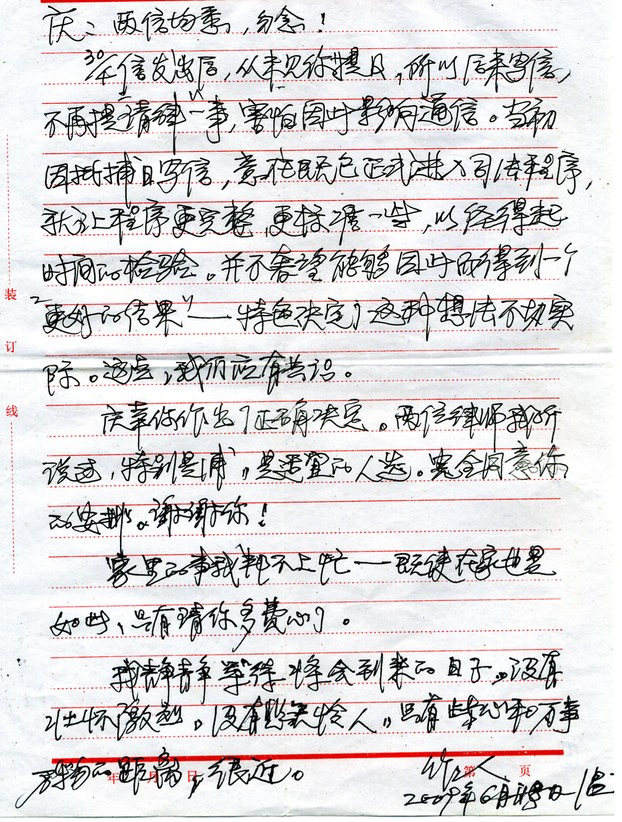 庆：两信均悉，勿念！
30本信发出后，从未见你提及，所以后来写信，
不再提“请律”一事，害怕因此影响通信。当初
因抓捕日写信，意在既已正式进入司法程序，
就让程序更完整、更标准一些，以经得起
时间的检验。并不奢望能够因此而得到一个
“更好的结果”——特色决定了这种想法不切实
际。这点，我们应有共识。
庆幸你作出了正确决定。两位律师我所
说过，特别是浦，是适宜的人选。完全同意你
的安排。谢谢你！
家里的事我帮不上忙——既使在家也是
如此，只有请你多费心了。
我静静等待将会到来的日子。没有
壮怀激烈，没有人，只有我心和万事
万物的距离，很近。
年 月 日
第 页
作人
2009年6月日
装
订
线